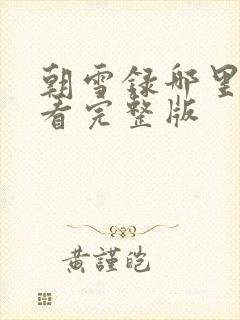 朝雪録哪里
看完整版
黄謹皑